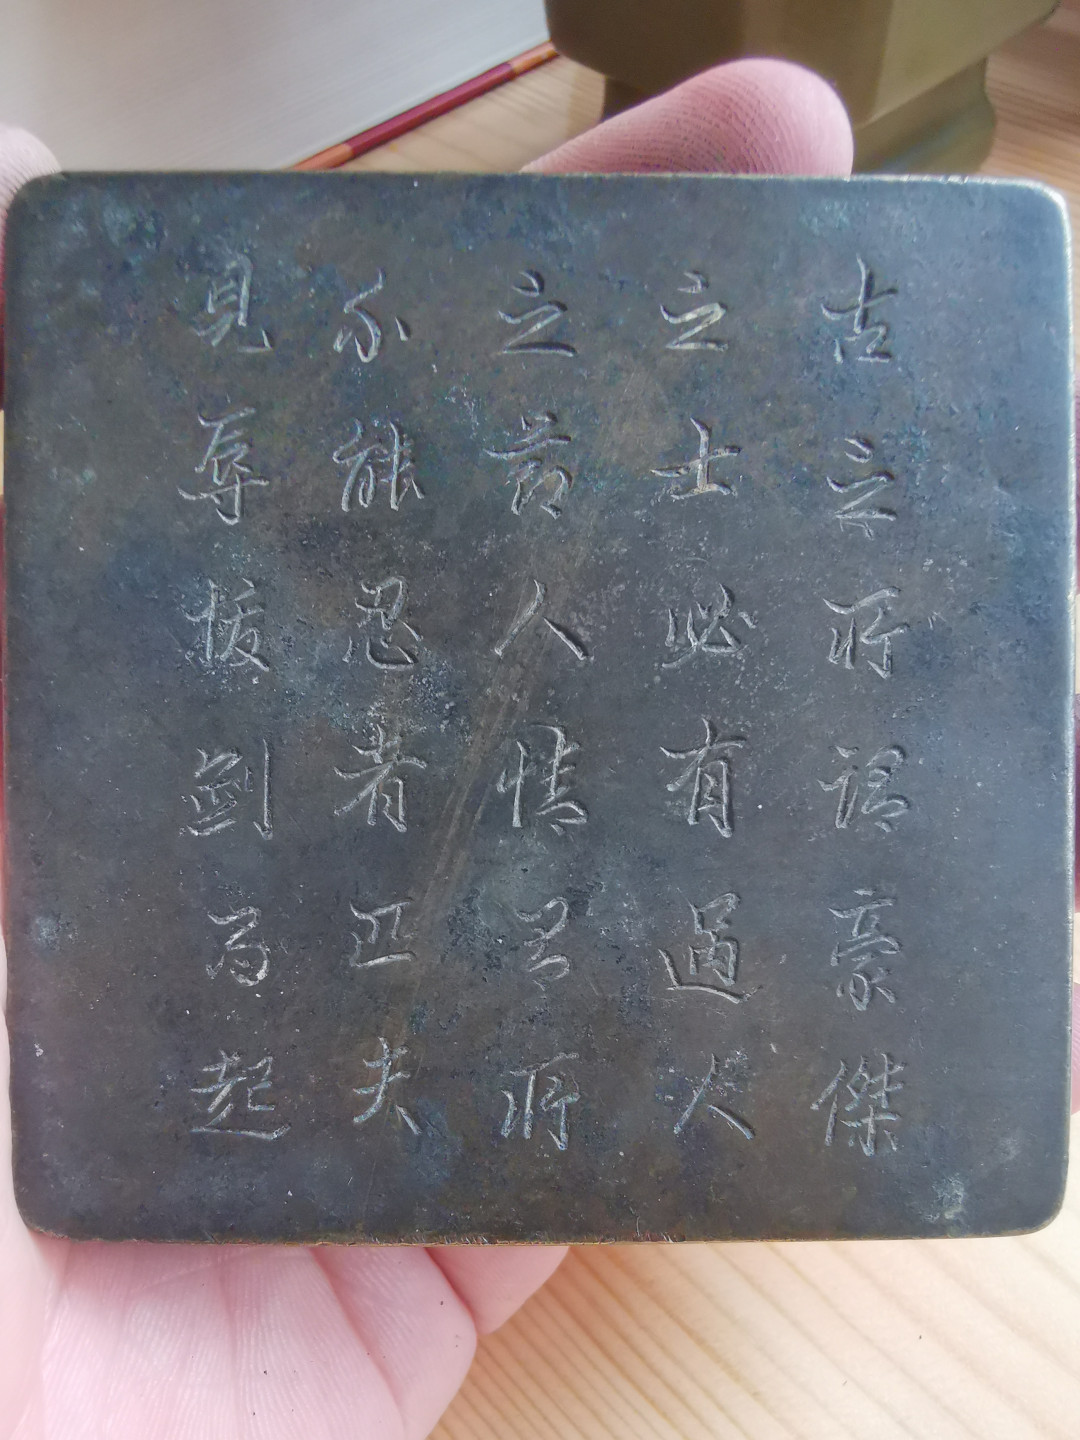 古之所謂豪傑
之士必有過人
之節人情有所
不能忍者匹夫
見辱拔劍而起